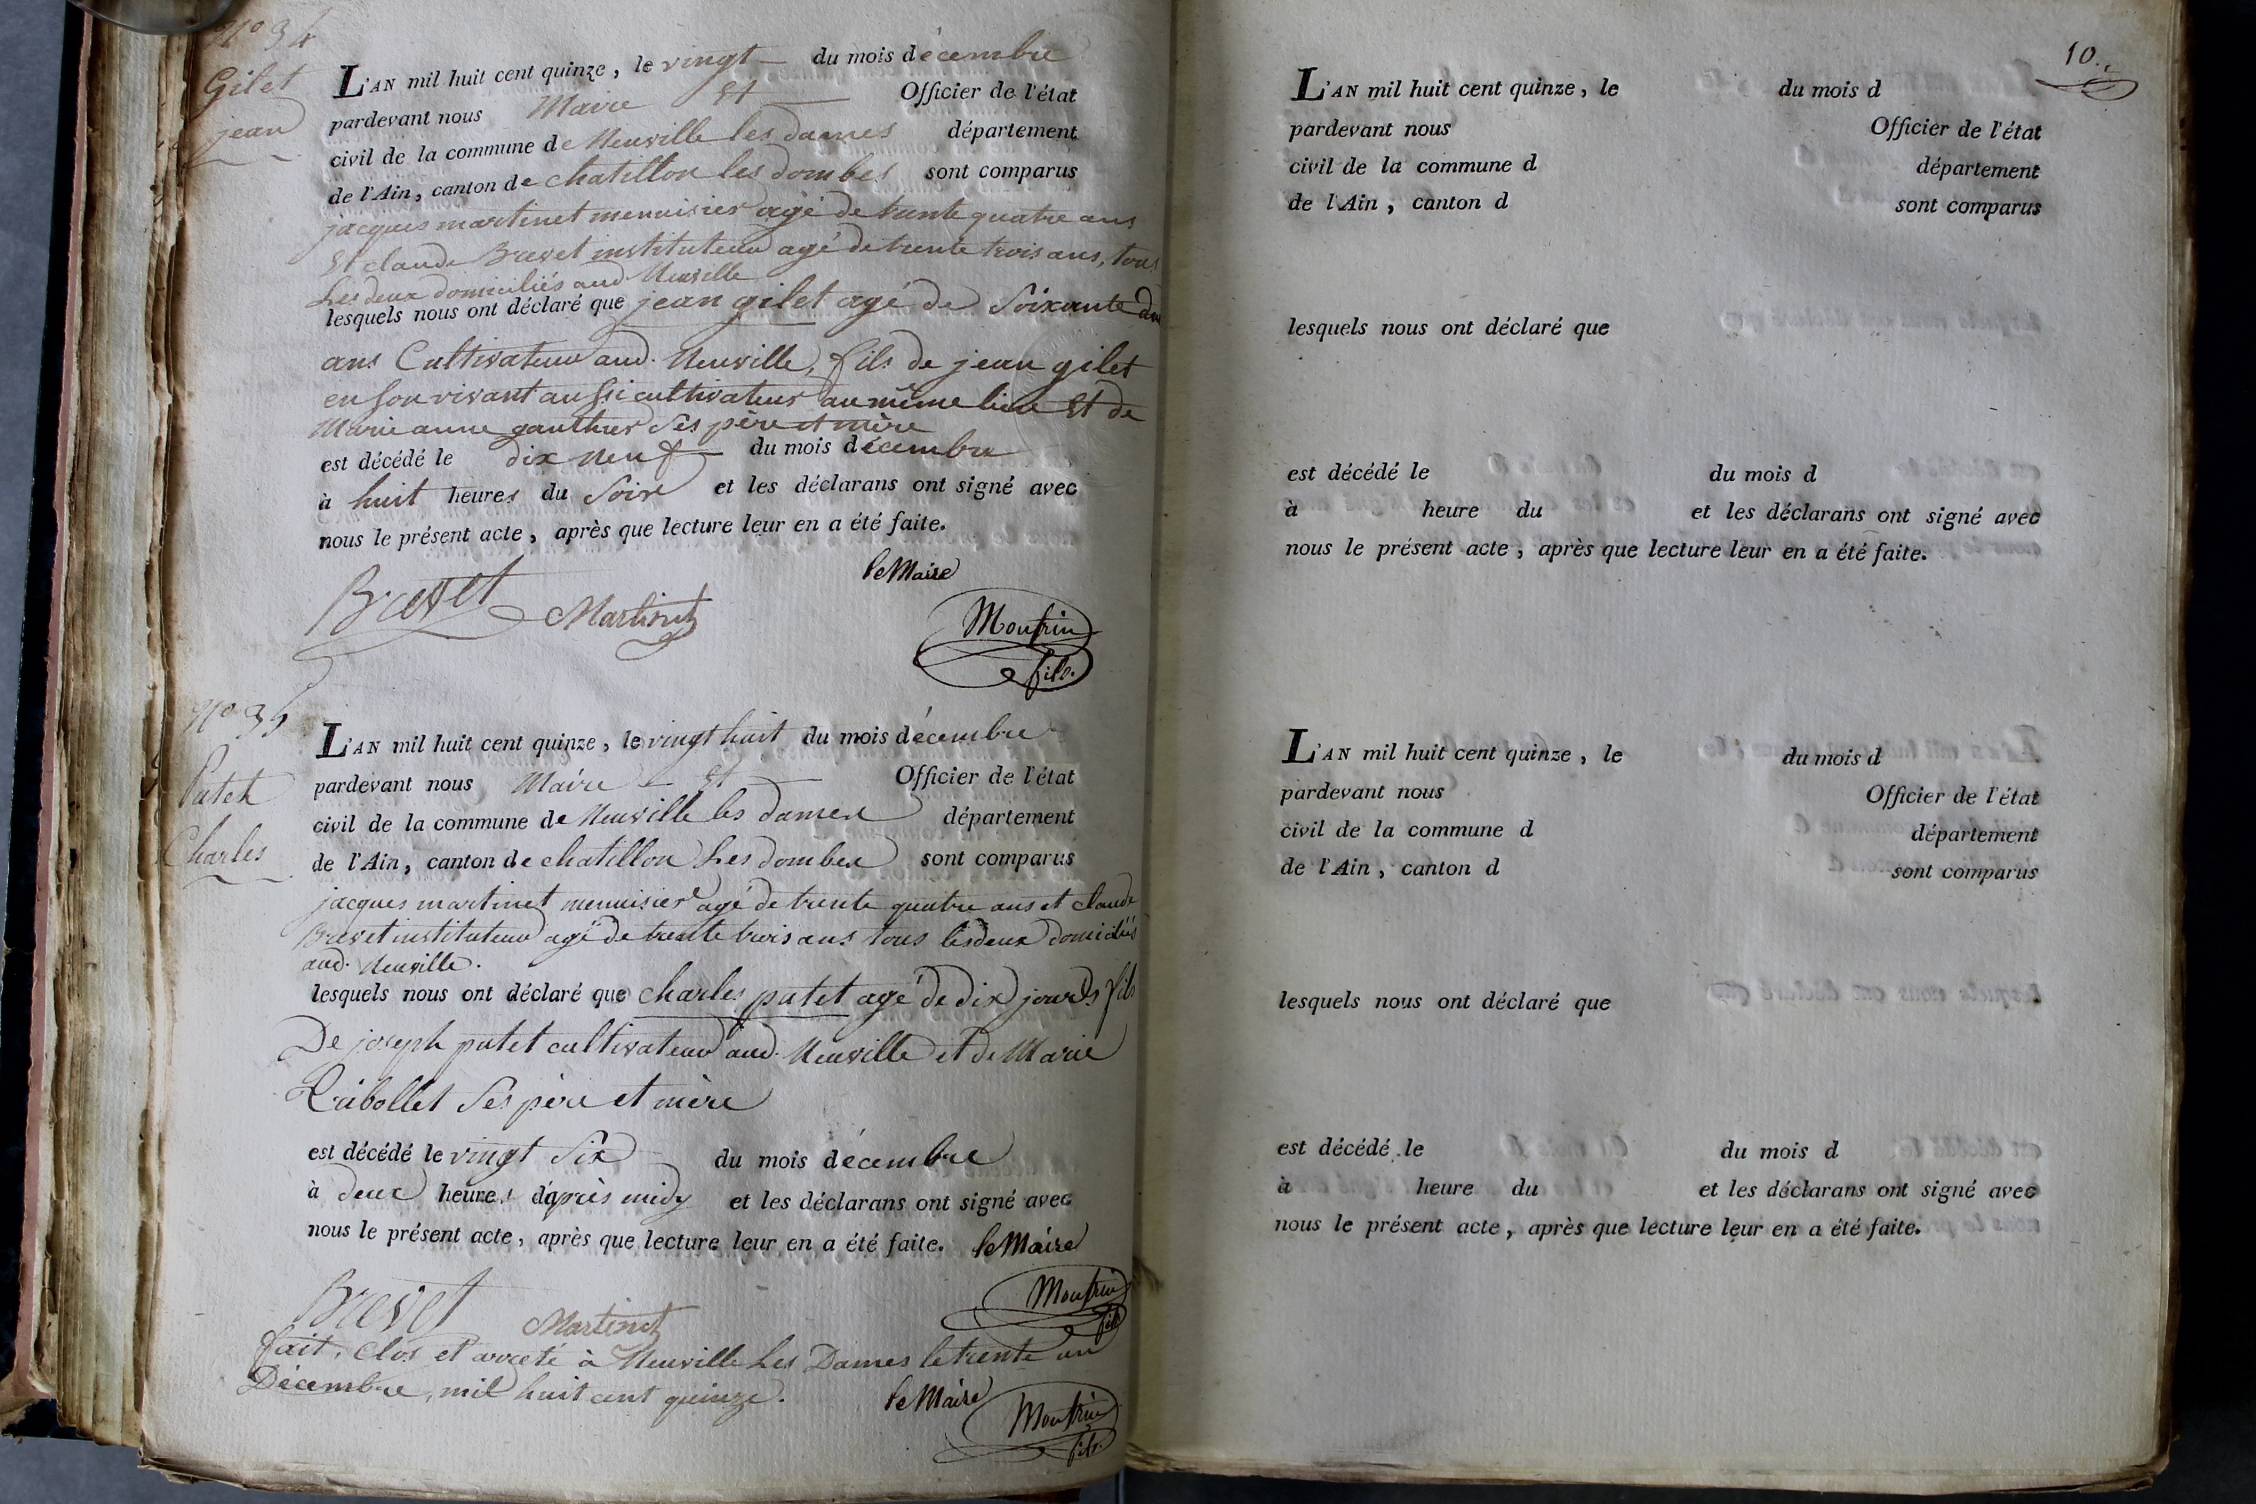 N° 34
Gilet
jean
L'AN mil huit cent quinze, le vingt du mois décembre
pardevant nous Maire Et Officier de l'état
civil de la commune de Neuville les dames département
de l'Ain, canton de chatillon les dombes sont comparus
jacques martinet menuisier agé de trente quatre ans
Et claude Brevet instituteur agé de trente trois ans, tous
Les deux domiciliés aud Neuville
lesquels nous ont déclaré que jean gilet agé de Soixante
ans Cultivateur aud. Neuville, fils de jean gilet
en son vivant aussi cultivateur au même lieu Et de
Marie anne gauthier Ses père et mère
est décédé le dix neuf du mois décembre
à huit heures du Soir et les déclarans ont signé avec
nous le présent acte, après que lecture leur en a été faite.
le Maire
Brevet Martinet Monfrin
fils.
N° 35
Patet
Charles
L'AN mil huit cent quinze, le vingt huit du mois décembre
pardevant nous Maire Et Officier de l'état
civil de la commune de Neuville les dames département
de l'Ain, canton de chatillon Les dombes sont comparus
jacques martinet menuisier agé de trente quatre ans et claude
Brevet instituteur agé de trente trois ans tous les deux domiciliés
aud. Neuville.
lesquels nous ont déclaré que charles patet agé de dix jours fils
De joseph patet cultivateur aud. Neuville et de Marie
Rabollet Ses père et mère
est décédé le vingt Six du mois décembre
à deux heures d'après midy et les déclarans ont signé avec
nous le présent acte, après que lecture leur en a été faite. le Maire
Brevet Martinet Monfrin
fils
fait, Clos et arreté à Neuville Les Dames le trente un
Décembre, mil huit cent quinze. le Maire Monfrin
fils.
10.
L'AN mil huit cent quinze, le du mois d
pardevant nous Officier de l'état
civil de la commune d département
de l'Ain, canton d sont comparus
lesquels nous ont déclaré que
est décédé le du mois d
à heure du et les déclarans ont signé avec
nous le présent acte, après que lecture leur en a été faite.
L'AN mil huit cent quinze, le du mois d
pardevant nous Officier de l'état
civil de la commune d département
de l'Ain, canton d sont comparus
lesquels nous ont déclaré que
est décédé le du mois d
à heure du et les déclarans ont signé avec
nous le présent acte, après que lecture leur en a été faite.